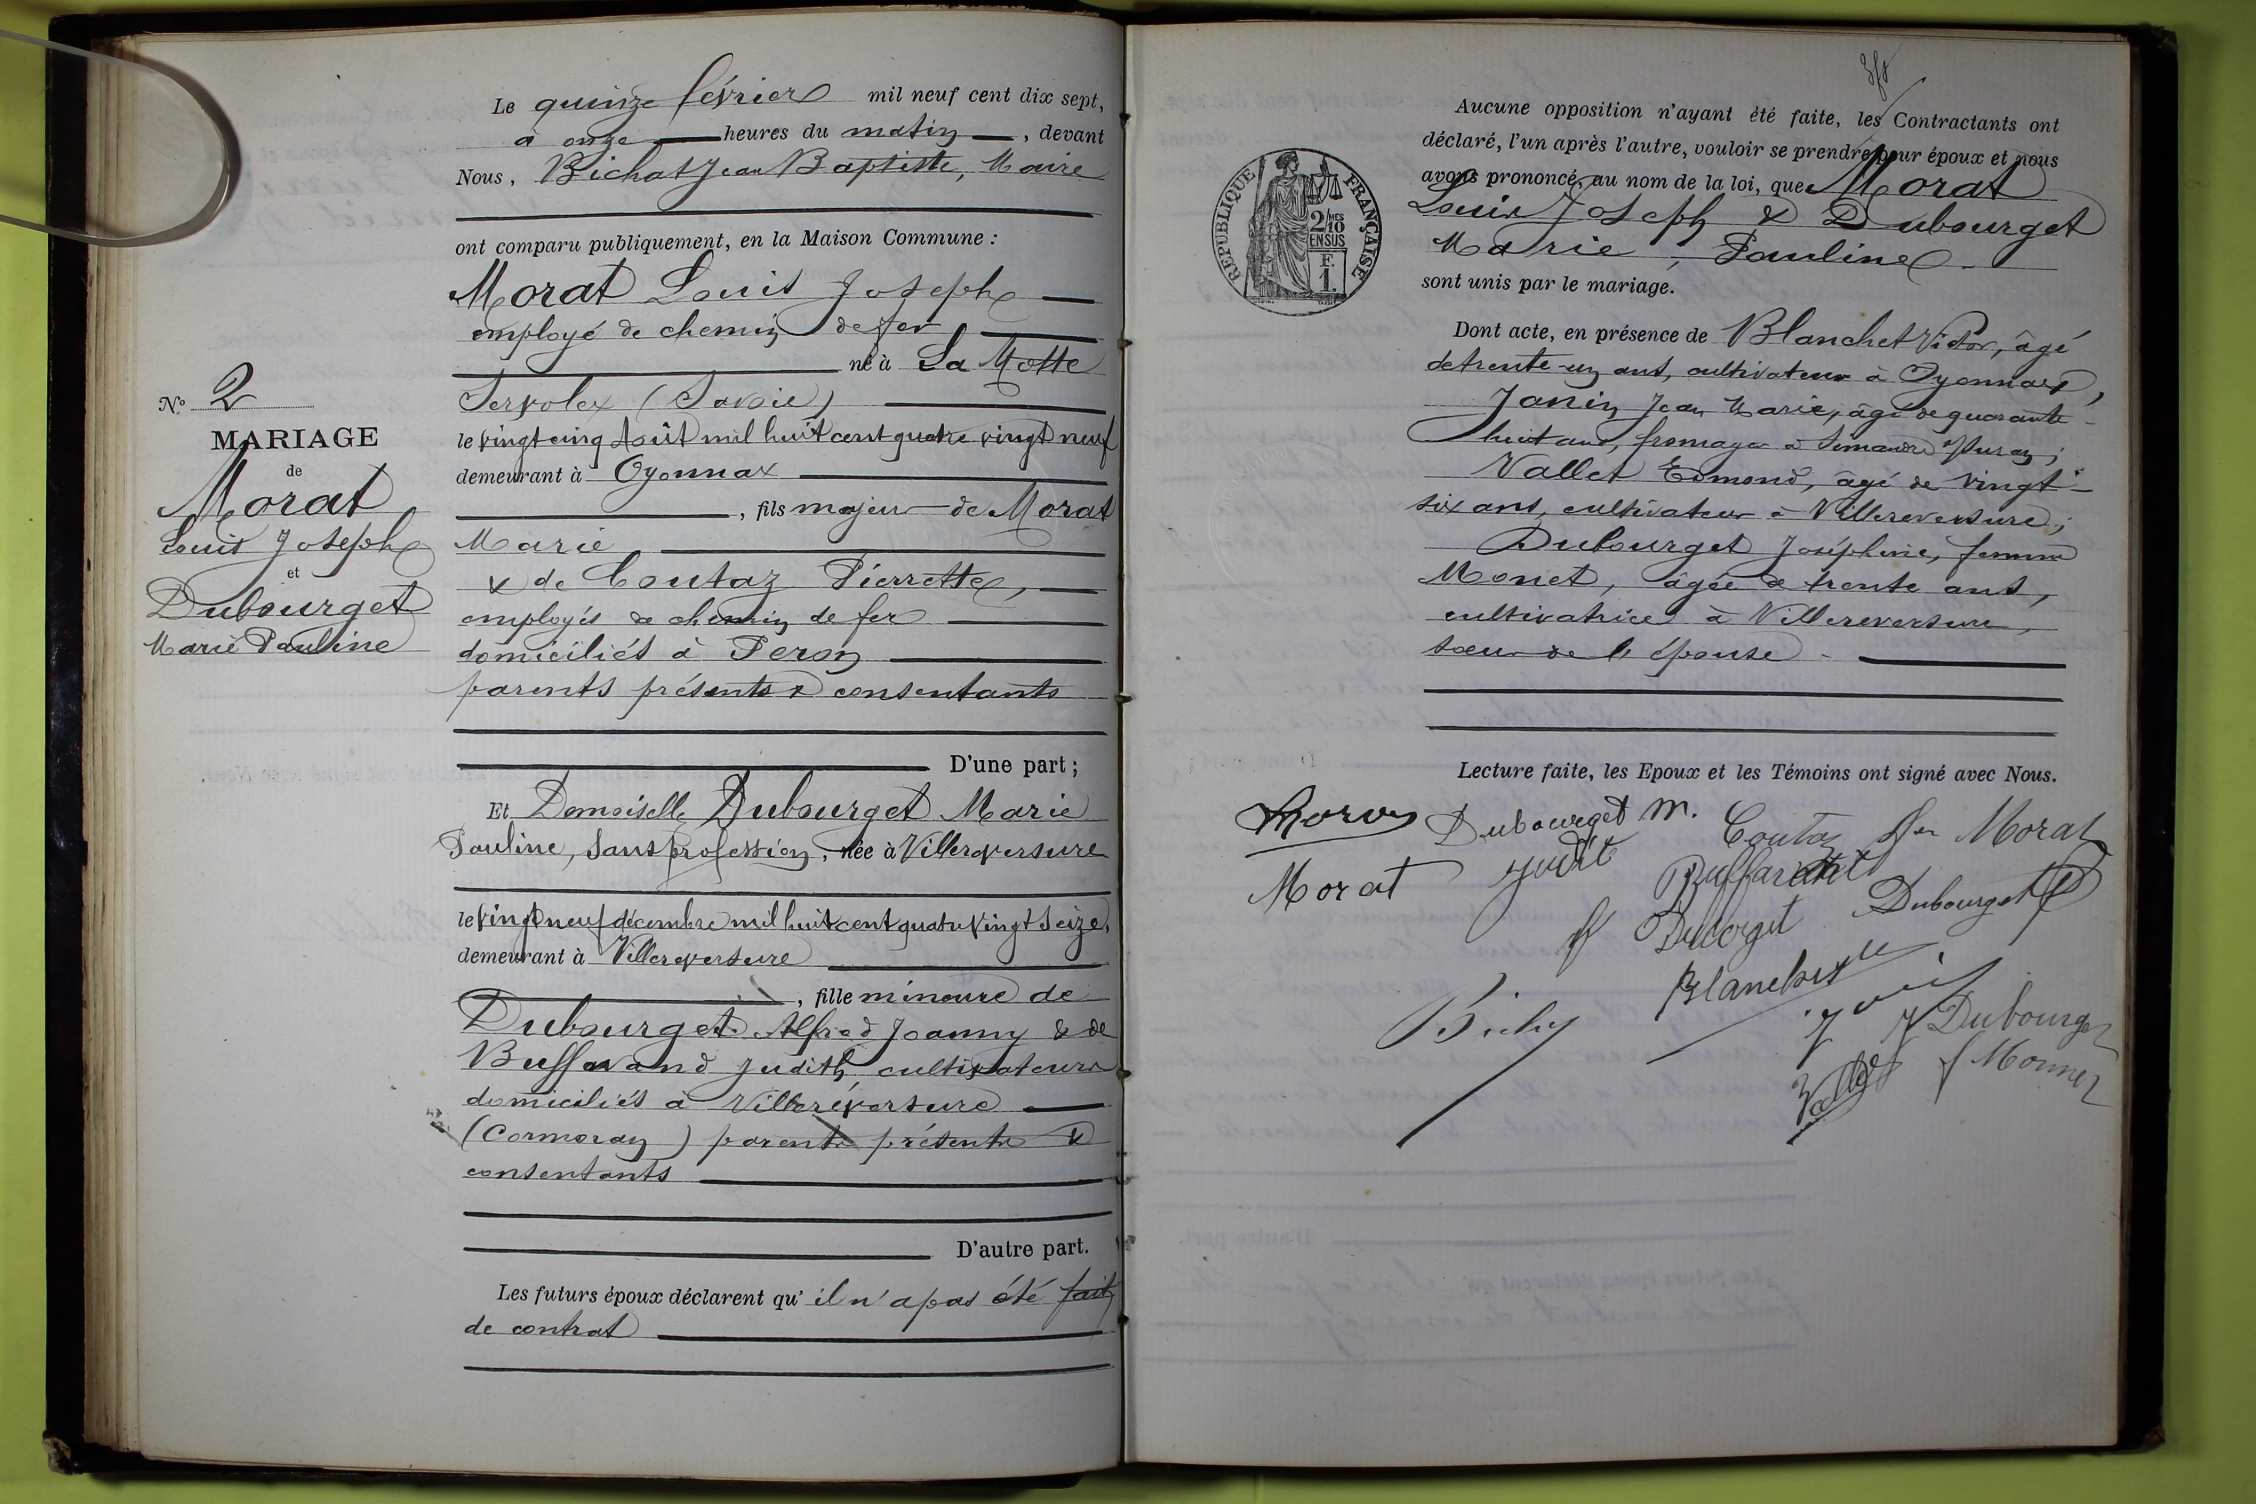 Le quinze février mil neuf cent dix sept,
à onze heures du matin, devant
Nous, Bichat Jean Baptiste, Maire
ont comparu publiquement, en la Maison Commune :
Morat Louis Joseph
employé de chemin de fer
né à La Motte
Servolex (Savoie)
le vingt cinq Août mil huit cent quatre vingt neuf
demeurant à Oyonnax
, fils majeur de Morat
Marie
& de Coutaz Pierrette,
employés de chemin de fer
domiciliés à Peron
parents présents & consentants
D'une part ;
Et Demoiselle Dubourget Marie
Pauline, sans profession, née à Villereversure
le vingt neuf décembre mil huit cent quatre vingt seize,
demeurant à Villereversure
, fille mineure de
Dubourget Alfred Joanny & de
Buffavand Judith, cultivateurs
domiciliés à Villereversure
(Cormoray) parents présents &
consentants
D'autre part.
Les futurs époux déclarent qu'il n'a pas été fait
de contrat
No 2
MARIAGE
de
Morat
Louis Joseph
et
Dubourget
Marie Pauline
Aucune opposition n'ayant été faite, les Contractants ont
déclaré, l'un après l'autre, vouloir se prendre pour époux et nous
avons prononcé, au nom de la loi, que Morat
Louis Joseph & Dubourget
Marie, Pauline
sont unis par le mariage.
Dont acte, en présence de Blanchet Victor, âgé
de trente-un ans, cultivateur à Oyonnax,
Janin Jean Marie, âgé de quarante-
huit ans, fromager à Simandre s/Suran ;
Vallet Edmond, âgé de vingt-
six ans, cultivateur à Villereversure ;
Dubourget Joséphine, femme
Monet, âgée de trente ans,
cultivatrice à Villereversure,
soeur de l'épouse.
Lecture faite, les Epoux et les Témoins ont signé avec Nous.
RÉPUBLIQUE FRANÇAISE
2/10 MES
EN SUS
F.
1.
Dubourget M. Coutaz Morat
Morat Judit
Dubourget
Blanchet
J Dubourget
f Monnet